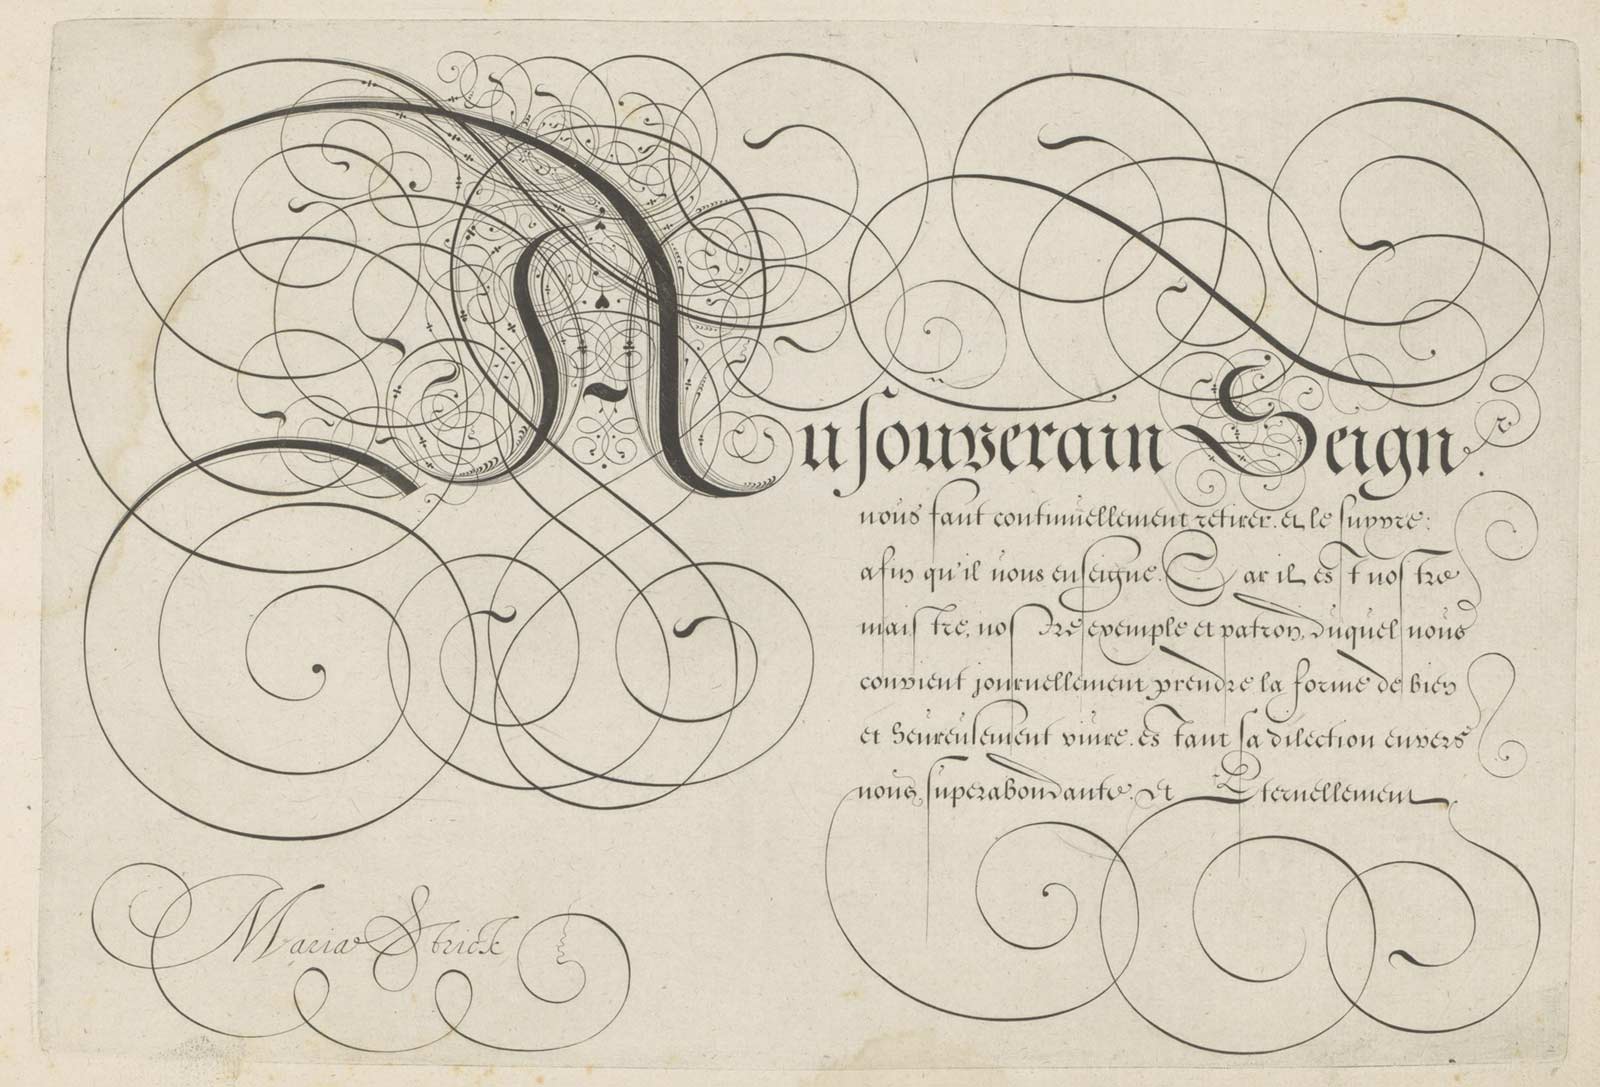 Au souverain Seign.
nous faut continuellement retirer, et le suyvre:
afin qu'il nous enseigne. Car il est nostre
maistre, nostre exemple et patron, duquel nous
convient journellement prendre la forme de bien
et heureusement viure. estant sa dilection envers
nous, superabondante. et Eternellement
Maria Strick